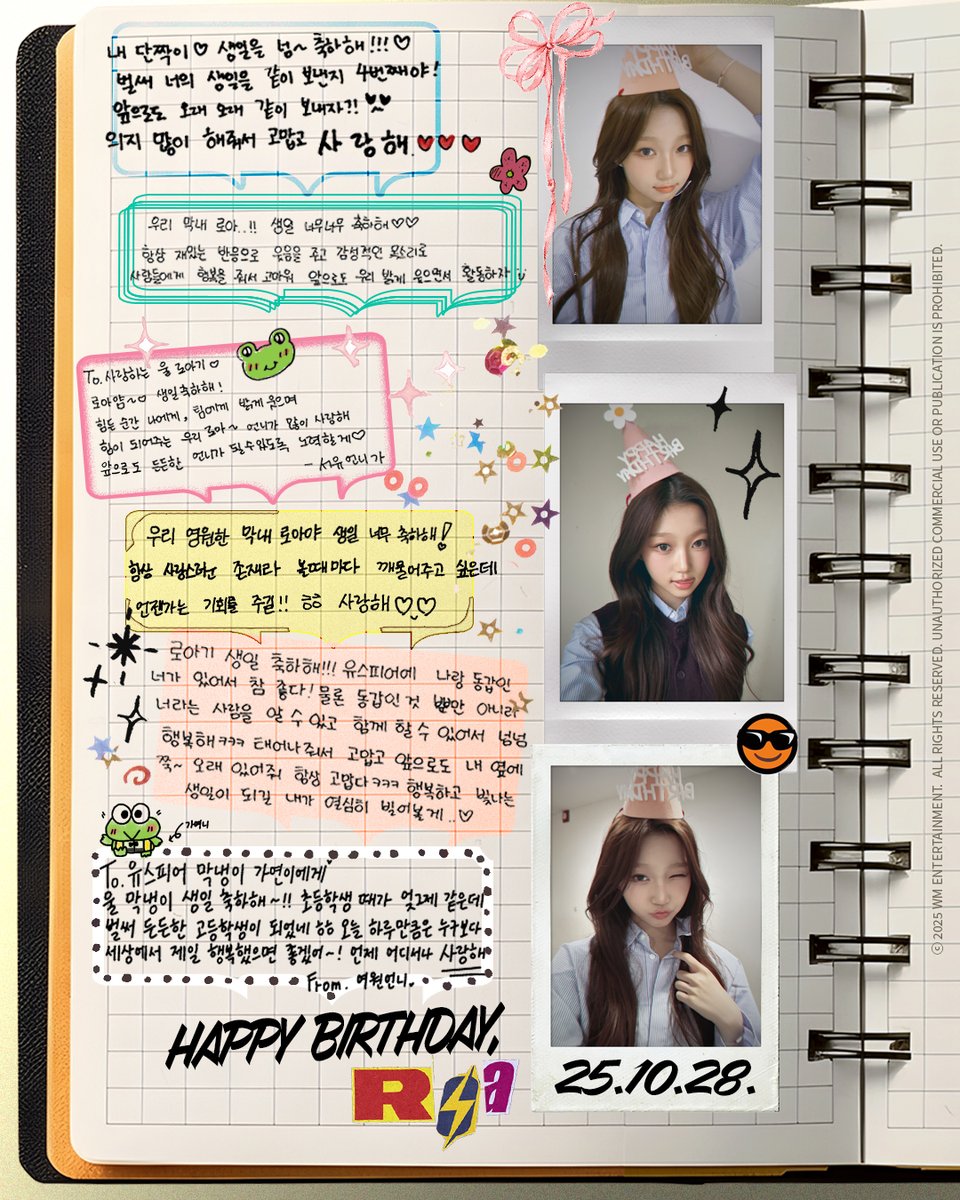 내 단짝이♡ 생일을 넘~ 축하해!!!♡
벌써 너의 생일을 같이 보낸지 4번째야!
앞으로도 오래 오래 같이 보내자?!
의지 많이 해줘서 고맙고 사랑해
우리 막내 로아..!! 생일 너무너무 축하해♡♡
항상 재밌는 반응으로 웃음을 주고 감성적인 목소리로
사람들에게 행복을 줘서 고마워 앞으로도 우리 밝게 웃으면서 활동하자
To. 사랑하는 울 로아기♡
로아얌~♡ 생일축하해!
힘든 순간 나에게, 팀에게 밝게 웃으며
힘이 되어주는 우리 로아~ 언니가 많이 사랑해
앞으로도 든든한 언니가 될 수 있도록 노력할게♡
- 서유언니가
우리 영원한 막내 로아야 생일 너무 축하해!
항상 사랑스러운 존재라 볼때마다 깨물어주고 싶은데
언젠가는 기회를 주길!! ㅎㅎ 사랑해♡♡
로아기 생일 축하해!!! 유스피어에 나랑 동갑인
너가 있어서 참 좋다! 물론 동갑인것 뿐만 아니라
너라는 사람을 알 수 있고 함께 할 수 있어서 넘넘
행복해ㅋㅋㅋ 태어나줘서 고맙고 앞으로도 내 옆에
쭉~ 오래 있어줘 항상 고맙다ㅋㅋㅋ 행복하고 빛나는
생일이 되길 내가 열심히 빌어볼게..♡
가여니
To. 유스피어 막냉이 가연이에게
울 막냉이 생일 축하해~!! 초등학생 때가 엊그제 같은데
벌써 든든한 고등학생이 되었네 ㅎㅎ 오늘 하루만큼은 누구보다
세상에서 제일 행복했으면 좋겠어~! 언제 어디서나 사랑해
From. 여원언니.
HAPPY BIRTHDAY,
Roa
HAPPY BIRTHDAY
HAPPY BIRTHDAY
HAPPY BIRTHDAY
25.10.28.
ⓒ 2025 WM ENTERTAINMENT. ALL RIGHTS RESERVED. UNAUTHORIZED COMMERCIAL USE OR PUBLICATION IS PROHIBITED.